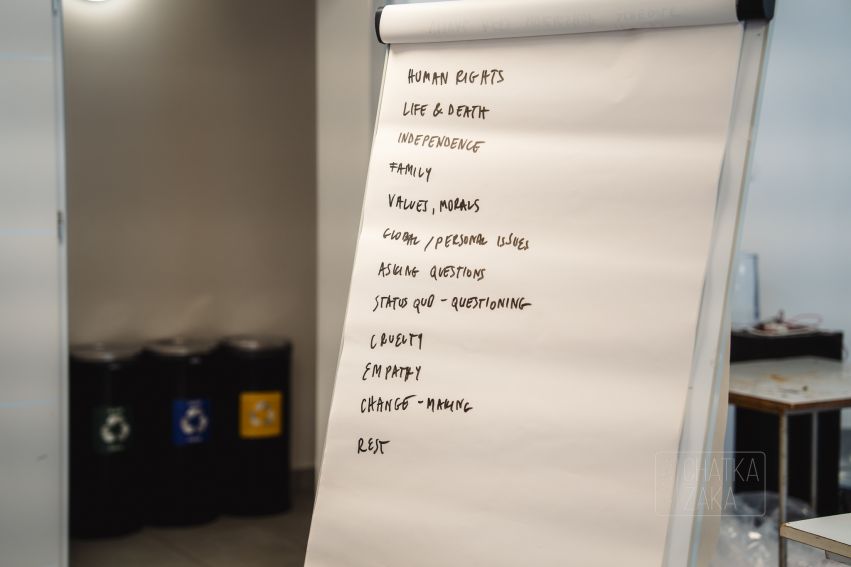 HUMAN RIGHTS
LIFE & DEATH
INDEPENDENCE
FAMILY
VALUES, MORALS
GLOBAL / PERSONAL ISSUES
ASKING QUESTIONS
STATUS QUO - QUESTIONING
CRUELTY
EMPATHY
CHANGE - MAKING
REST
CHATKA
ZAKA